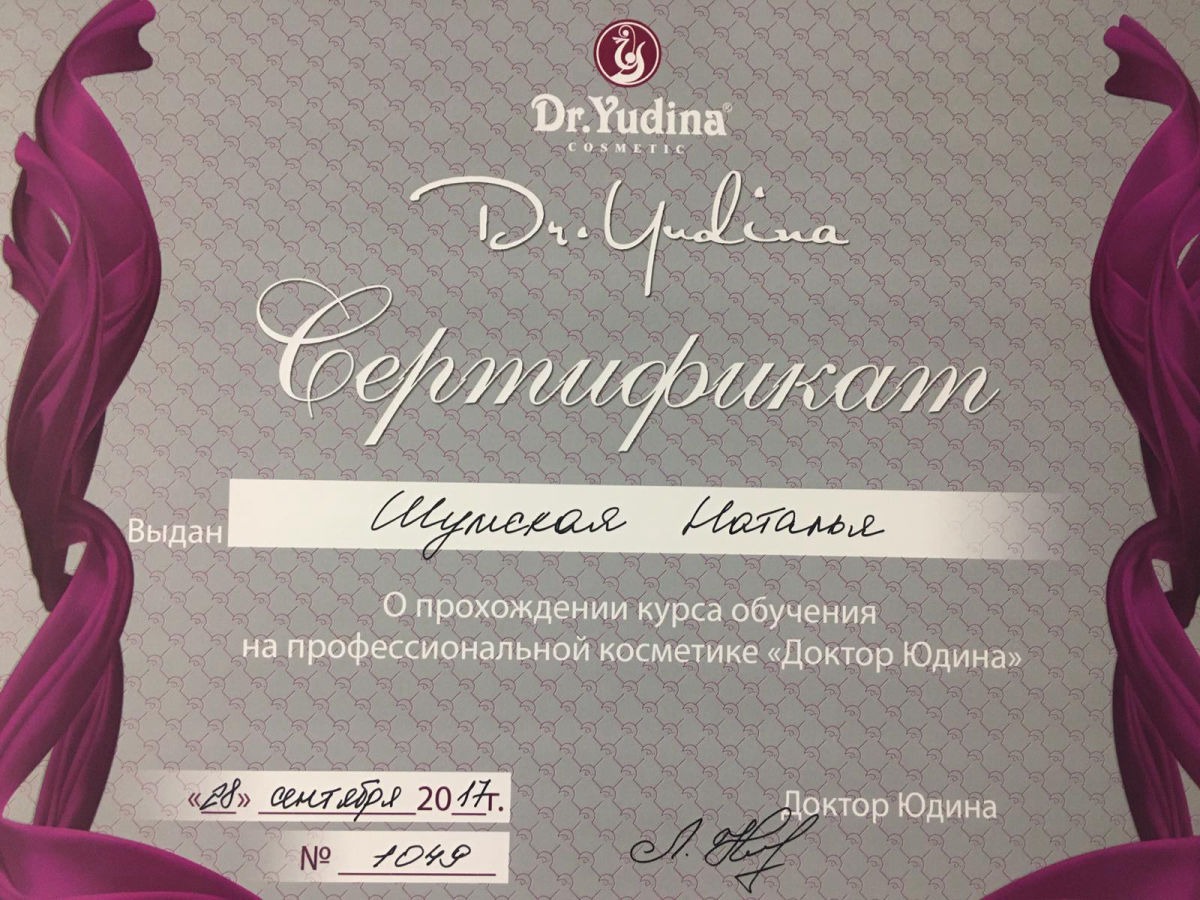 Dr.Yudina®
COSMETIC
Dr. Yudina
Сертификат
Выдан Шумская Наталья
О прохождении курса обучения
на профессиональной косметике «Доктор Юдина»
«28» сентября 2017г.
Доктор Юдина
№ 1049